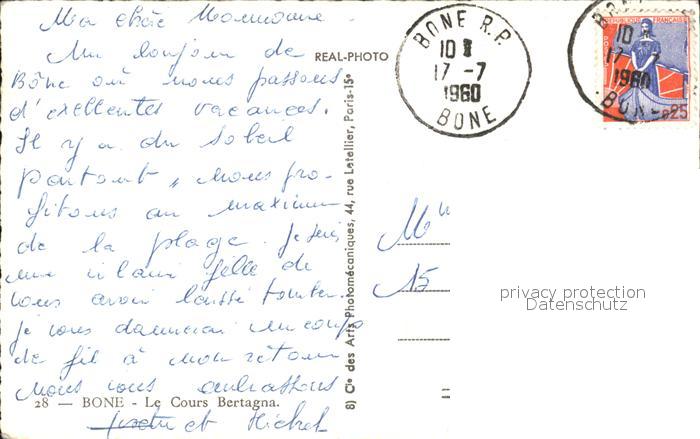 Ma chère Mammoune.
Un bonjour de
Bône où nous passons
d'exellentes vacances.
Il y a du soleil
partout, nous pro-
fitons au maximum
de la plage. Je suis
une vilaine fille de
vous avoir laissé tomber.
je vous donnerai un coup
de fil à mon retour
Nous vous embrassons
et Michel
28 — BONE - Le Cours Bertagna.
REAL-PHOTO
8) Cie des Arts Photomécaniques, 44, rue Letellier, Paris-15e
BONE R.P.
10
17 -7
1960
BONE
10
17
1960
BONE
REPUBLIQUE FRANÇAISE
0,25
M
15
privacy protection
Datenschutz